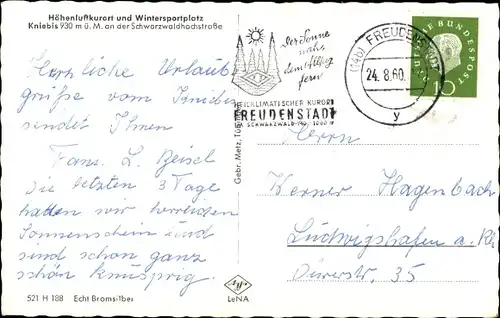 Höhenluftkurort und Wintersportplatz
Kniebis 930 m ü. M. an der Schwarzwaldhochstraße
Herzliche Urlaubs
grüße vom Kniebis
sendet Ihnen
Fam. L. Beisel
Die letzten 3 Tage
hatten wir herrlichen
Sonnenschein und
sind schon ganz
schön knusprig.
521 H 188 Echt Bromsilber
Gebr. Metz, Tübingen
LeNA
Der Sonne
nah,
dem Alltag
fern
HEILKLIMATISCHER KURORT
FREUDENSTADT
SCHWARZWALD 740-1000 m
(14b) FREUDENSTADT
24.8.60.
y
DEUTSCHE BUNDESPOST
10
Herrn
Werner Hagenbach
Ludwigshafen a. Rh
Dürerstr. 35